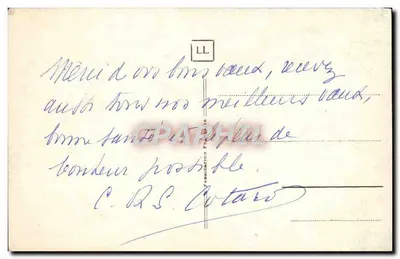 LL
Merci d vos bons vœux, recevez
aussi tous nos meilleurs vœux,
bonne santé et le plus de
bonheur possible.
C. R. S. Cotard
CPAPHIL